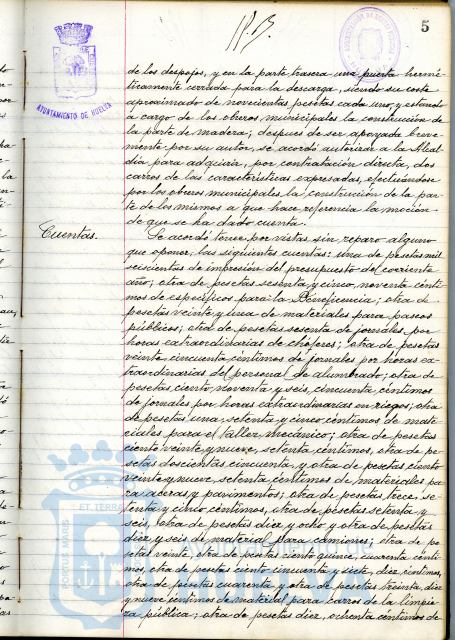 5
AYUNTAMIENTO DE HUELVA
de los despojos, y en la parte trasera una puerta hermé-
ticamente cerrada para la descarga, siendo su coste
aproximado de novecientas pesetas cada uno, y estando
a cargo de los obreros municipales la construcción de
la parte de madera; despues de ser apoyada breve-
mente por su autor, se acordó autorizar a la Alcal-
día para adquirir, por contratación directa, dos
carros de las características expresadas, efectuándose
por los obreros municipales la construcción de la par-
te de los mismos a que hace referencia la moción
de que se ha dado cuenta.
Cuentas.
Se acordó tener por vistas sin reparo alguno
que oponer, las siguientes cuentas: una de pesetas mil
seiscientas de impresión del presupuesto del corriente
año; otra de pesetas sesenta y cinco, noventa cénti-
mos de específicos para la Beneficencia; otra de
pesetas veinte y una de materiales para paseos
públicos; otra de pesetas sesenta de jornales por
horas extraordinarias de chóferes; otra de pesetas
veinte cincuenta céntimos de jornales por horas ex-
traordinarias del personal de alumbrado; otra de
pesetas ciento noventa y seis, cincuenta céntimos
de jornales por horas extraordinarias en riegos; otra
de pesetas una, setenta y cinco céntimos de mate-
riales para el taller mecánico; otra de pesetas
ciento veinte y nueve, setenta céntimos, otra de pe-
setas doscientas cincuenta, y otra de pesetas ciento
veinte y nueve, setenta céntimos de materiales pa-
ra aceras y pavimentos; otra de pesetas trece, se-
tenta y cinco céntimos, otra de pesetas setenta y
seis, otra de pesetas diez y ocho y otra de pesetas
diez y seis de material para camiones; otra de pe-
setas veinte, otra de pesetas ciento quince, cuarenta cénti-
mos, otra de pesetas ciento cincuenta y siete, diez céntimos,
otra de pesetas cuarenta y otra de pesetas treinta, diez
y nueve céntimos de material para carros de la limpie-
za pública; otra de pesetas diez, ochenta céntimos de
PORTUS MARIS ET TERRAE